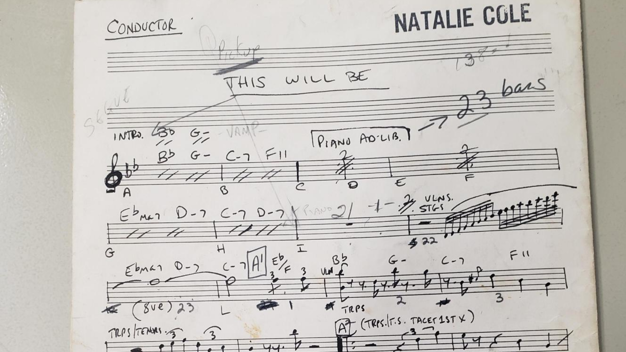 CONDUCTOR
NATALIE COLE
Pickup
138
THIS WILL BE
SEGUE
23 bars
INTRO. Bb G- VAMP
PIANO AD-LIB.
Bb G- C-7 F11
A B C D E F
Ebma7 D-7 C-7 D-7
21 -1- 2
VLNS.
STGS
G H I
22
Ebma7 D-7 C-7 A' Eb/F Bb G- C-7 F11
(8va) 23 L 1 TRPS 2 3
TRPS/TENORS 3 3
A2 (TRPS/T.S. TACET 1ST X)